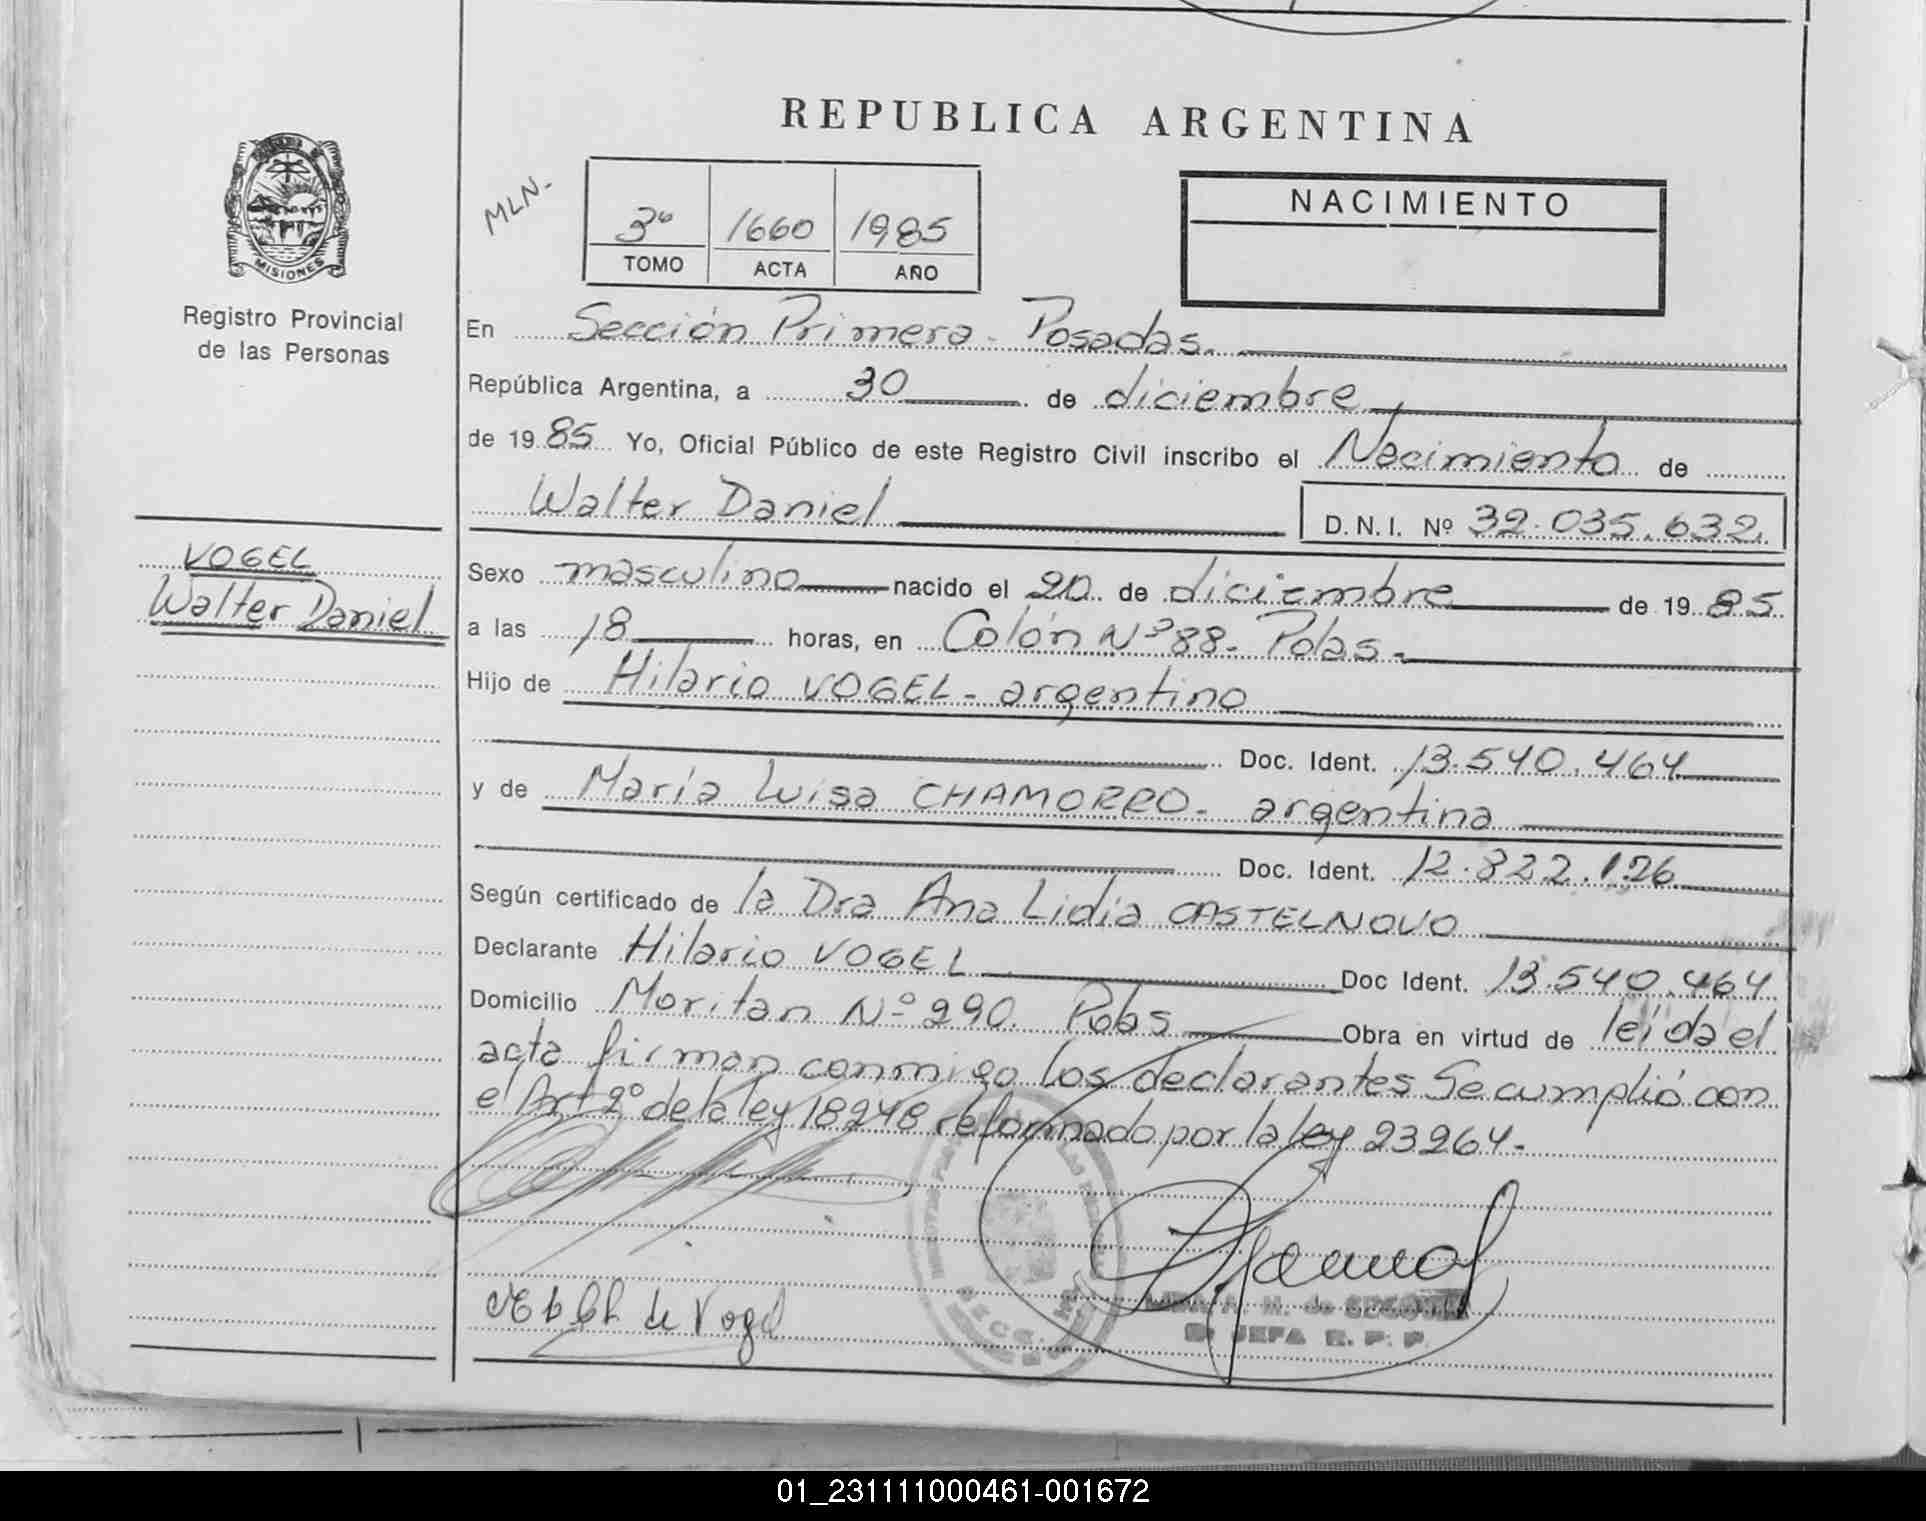 REPUBLICA ARGENTINA
MLN.
3º 1660 1985
TOMO ACTA AÑO
NACIMIENTO
MISIONES
Registro Provincial
de las Personas
En Sección Primera - Posadas.
República Argentina, a 30 de diciembre
de 1985 Yo, Oficial Público de este Registro Civil inscribo el Nacimiento de
Walter Daniel D.N.I. Nº 32.035.632.
VOGEL
Walter Daniel
Sexo masculino nacido el 20 de diciembre de 1985
a las 18 horas, en Colón Nº 88 - Pdas -
Hijo de Hilario VOGEL - argentino
Doc. Ident. 13.540.464
y de María Luisa CHAMORRO - argentina
Doc. Ident. 12.822.126
Según certificado de la Dra Ana Lidia CASTELNOVO
Declarante Hilario VOGEL Doc Ident. 13.540.464
Domicilio Moritan Nº 290. Pdas Obra en virtud de leída el
acta firman conmigo los declarantes Se cumplió con
el Art 2º de la ley 18248 reformado por la ley 23264 -
Ch de Vogel
JEFA R. P. P.
01_231111000461-001672